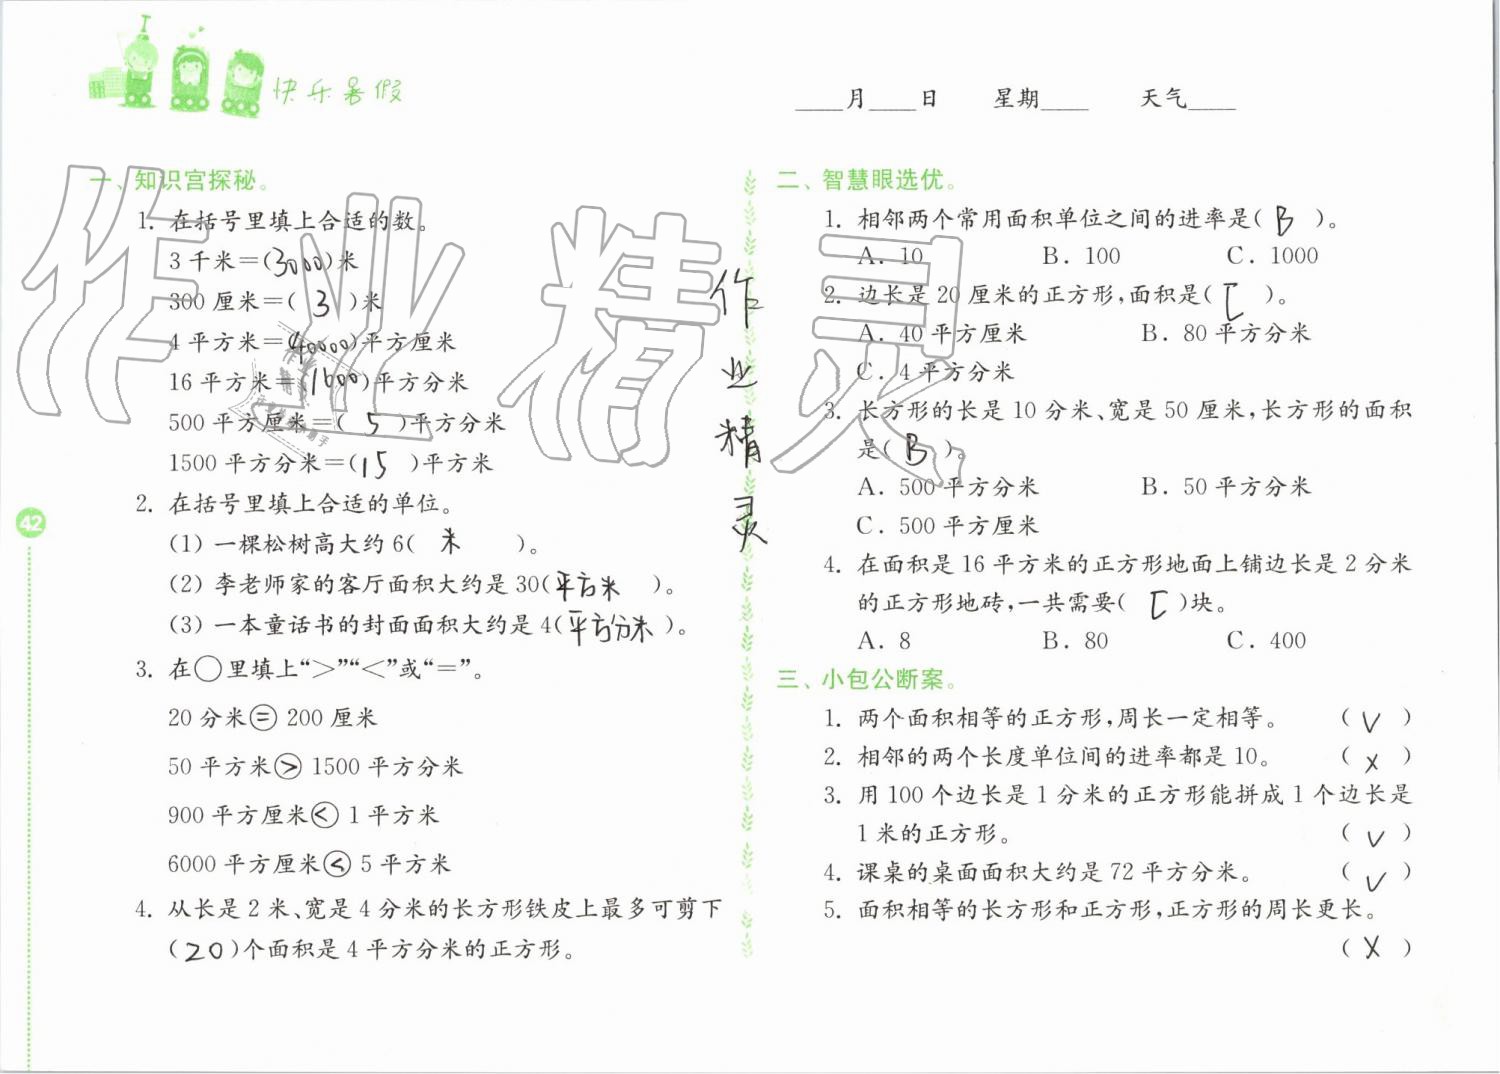 快乐暑假
____月____日 星期____ 天气____
一、知识宫探秘。
1. 在括号里填上合适的数。
3千米=(3000)米
300厘米=( 3 )米
4平方米=(40000)平方厘米
16平方米=(1600)平方分米
500平方厘米=( 5 )平方分米
1500平方分米=(15 )平方米
2. 在括号里填上合适的单位。
(1) 一棵松树高大约6( 米 )。
(2) 李老师家的客厅面积大约是30(平方米 )。
(3) 一本童话书的封面面积大约是4(平方分米)。
3. 在○里填上“>”“<”或“=”。
20分米=200厘米
50平方米>1500平方分米
900平方厘米<1平方米
6000平方厘米<5平方米
4. 从长是2米、宽是4分米的长方形铁皮上最多可剪下
(20)个面积是4平方分米的正方形。
42
作业精灵
作业精灵
二、智慧眼选优。
1. 相邻两个常用面积单位之间的进率是( B )。
A. 10 B. 100 C. 1000
2. 边长是20厘米的正方形,面积是( C )。
A. 40平方厘米 B. 80平方分米
C. 4平方分米
3. 长方形的长是10分米、宽是50厘米,长方形的面积
是( B )。
A. 500平方分米 B. 50平方分米
C. 500平方厘米
4. 在面积是16平方米的正方形地面上铺边长是2分米
的正方形地砖,一共需要( C )块。
A. 8 B. 80 C. 400
三、小包公断案。
1. 两个面积相等的正方形,周长一定相等。 ( √ )
2. 相邻的两个长度单位间的进率都是10。 ( × )
3. 用100个边长是1分米的正方形能拼成1个边长是
1米的正方形。 ( √ )
4. 课桌的桌面面积大约是72平方分米。 ( √ )
5. 面积相等的长方形和正方形,正方形的周长更长。
( × )